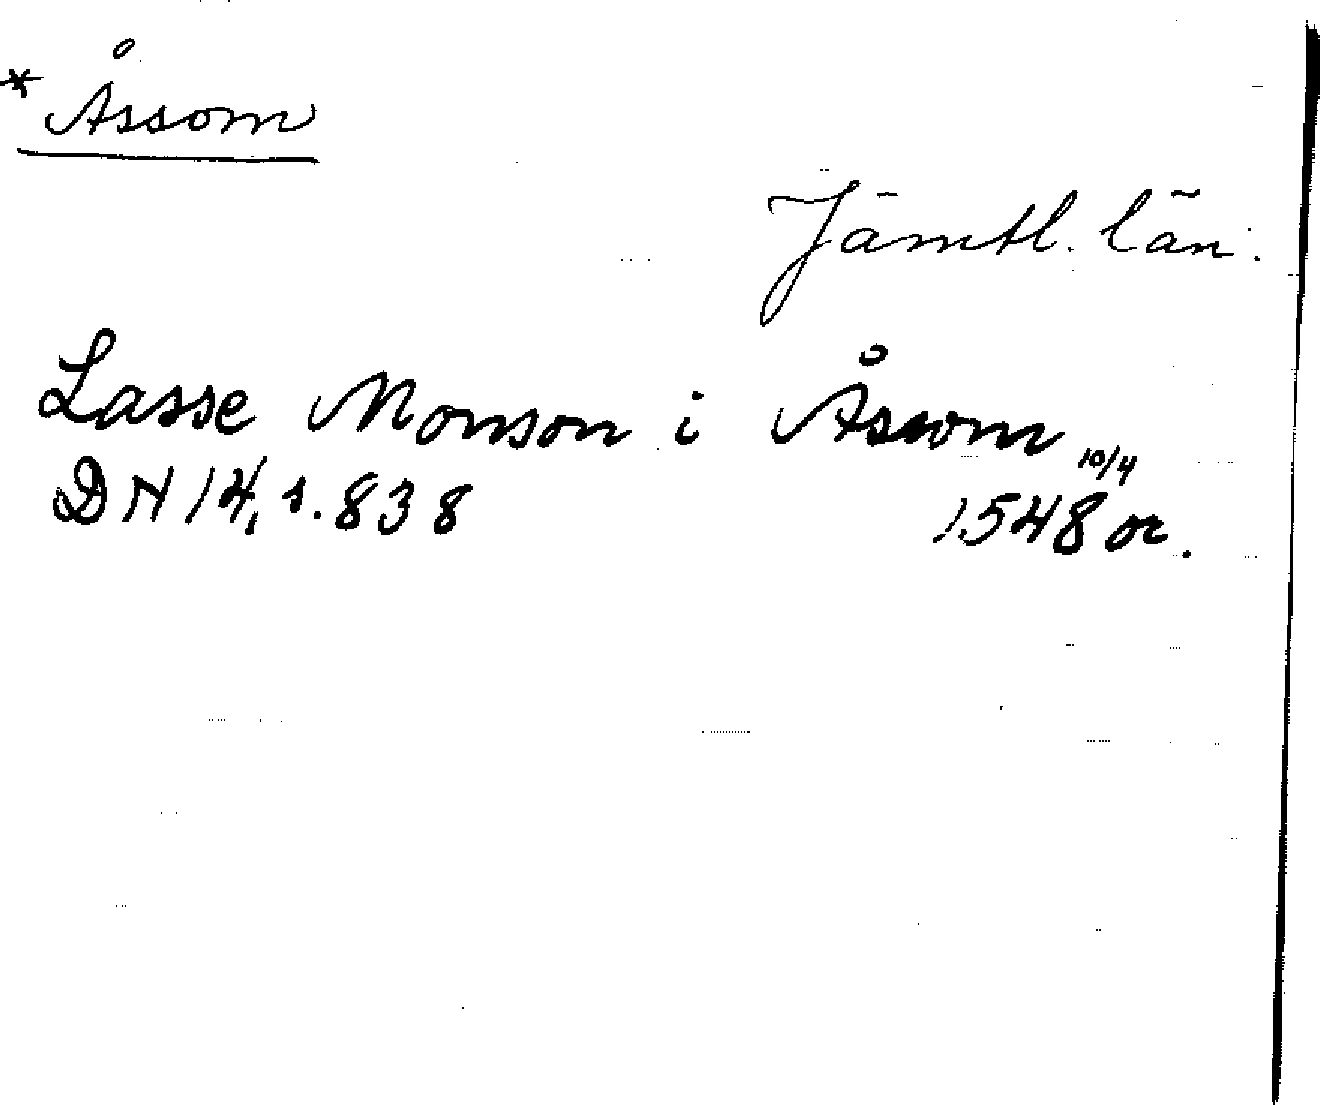 * Åssom
Jämtl. län.
Lasse Monson i Åssom
DN 14, s. 838 10/4 1548 or.